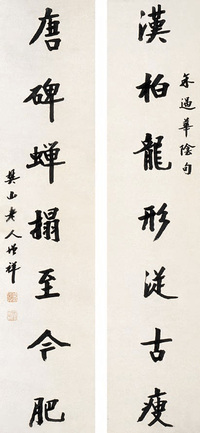 余過華陰句
漢柏龍形從古瘦
唐碑蟬搨至今肥
樊山老人增祥